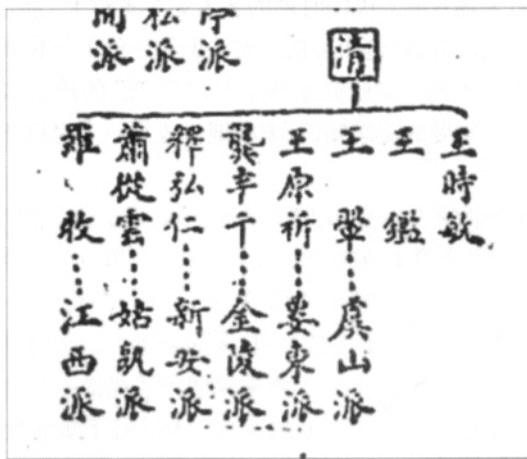 清
亭派
松派
派
王時敏
王鑑
王翬……虞山派
王原祈……婁東派
龔半千……金陵派
釋弘仁……新安派
蕭從雲……姑孰派
羅牧……江西派